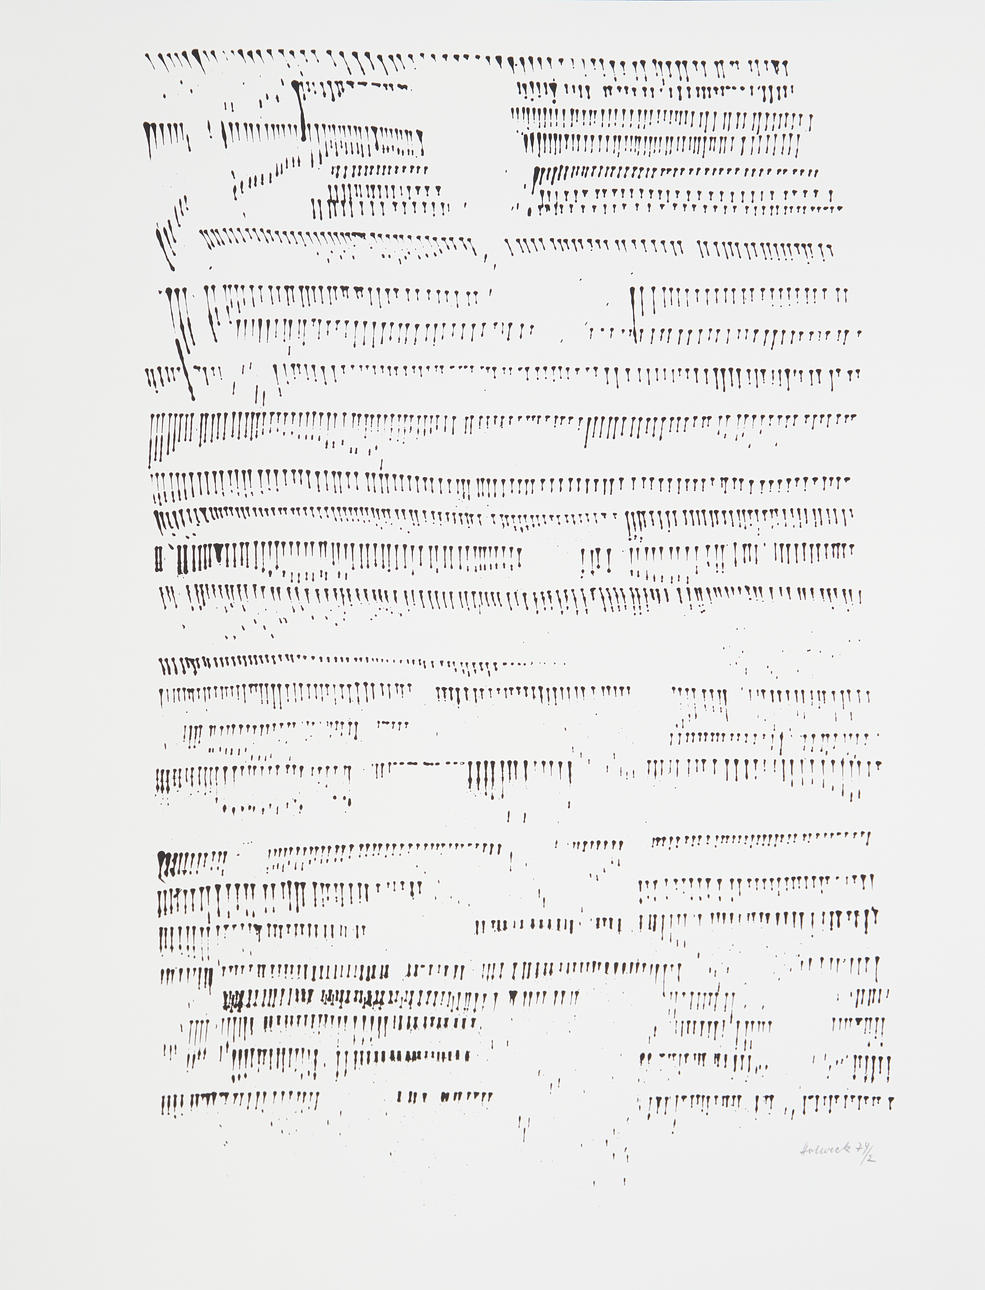 Holweck 74/2